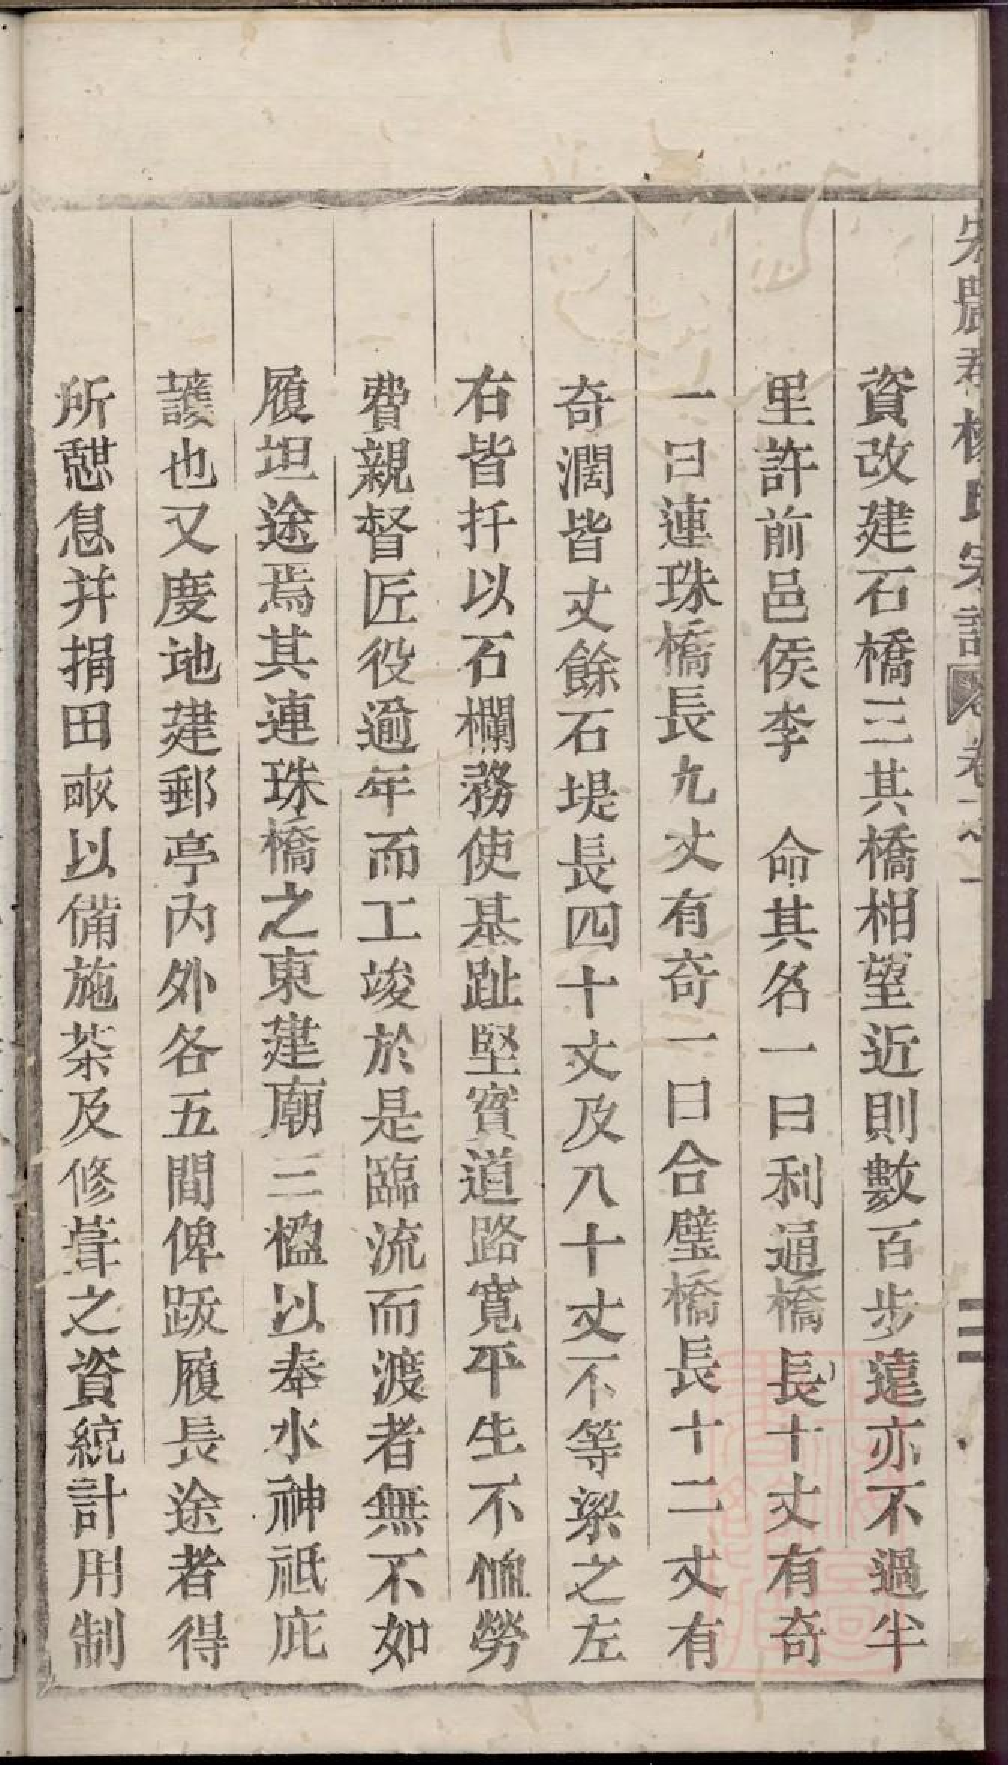 資改建石橋三其橋相望近則數百步遠亦不過半
里許前邑侯李　命其名一曰利通橋長十丈有奇
一曰連珠橋長九丈有奇一曰合璧橋長十二丈有
奇濶皆丈餘石堤長四十丈及八十丈不等梁之左
右皆扦以石欄務使基趾堅實道路寬平生不恤勞
費親督匠役逾年而工竣於是臨流而渡者無不如
履坦途焉其連珠橋之東建廟三楹以奉水神祗庇
護也又度地建郵亭內外各五間俾跋履長途者得
所憇息并捐田畞以備施茶及修葺之資統計用制